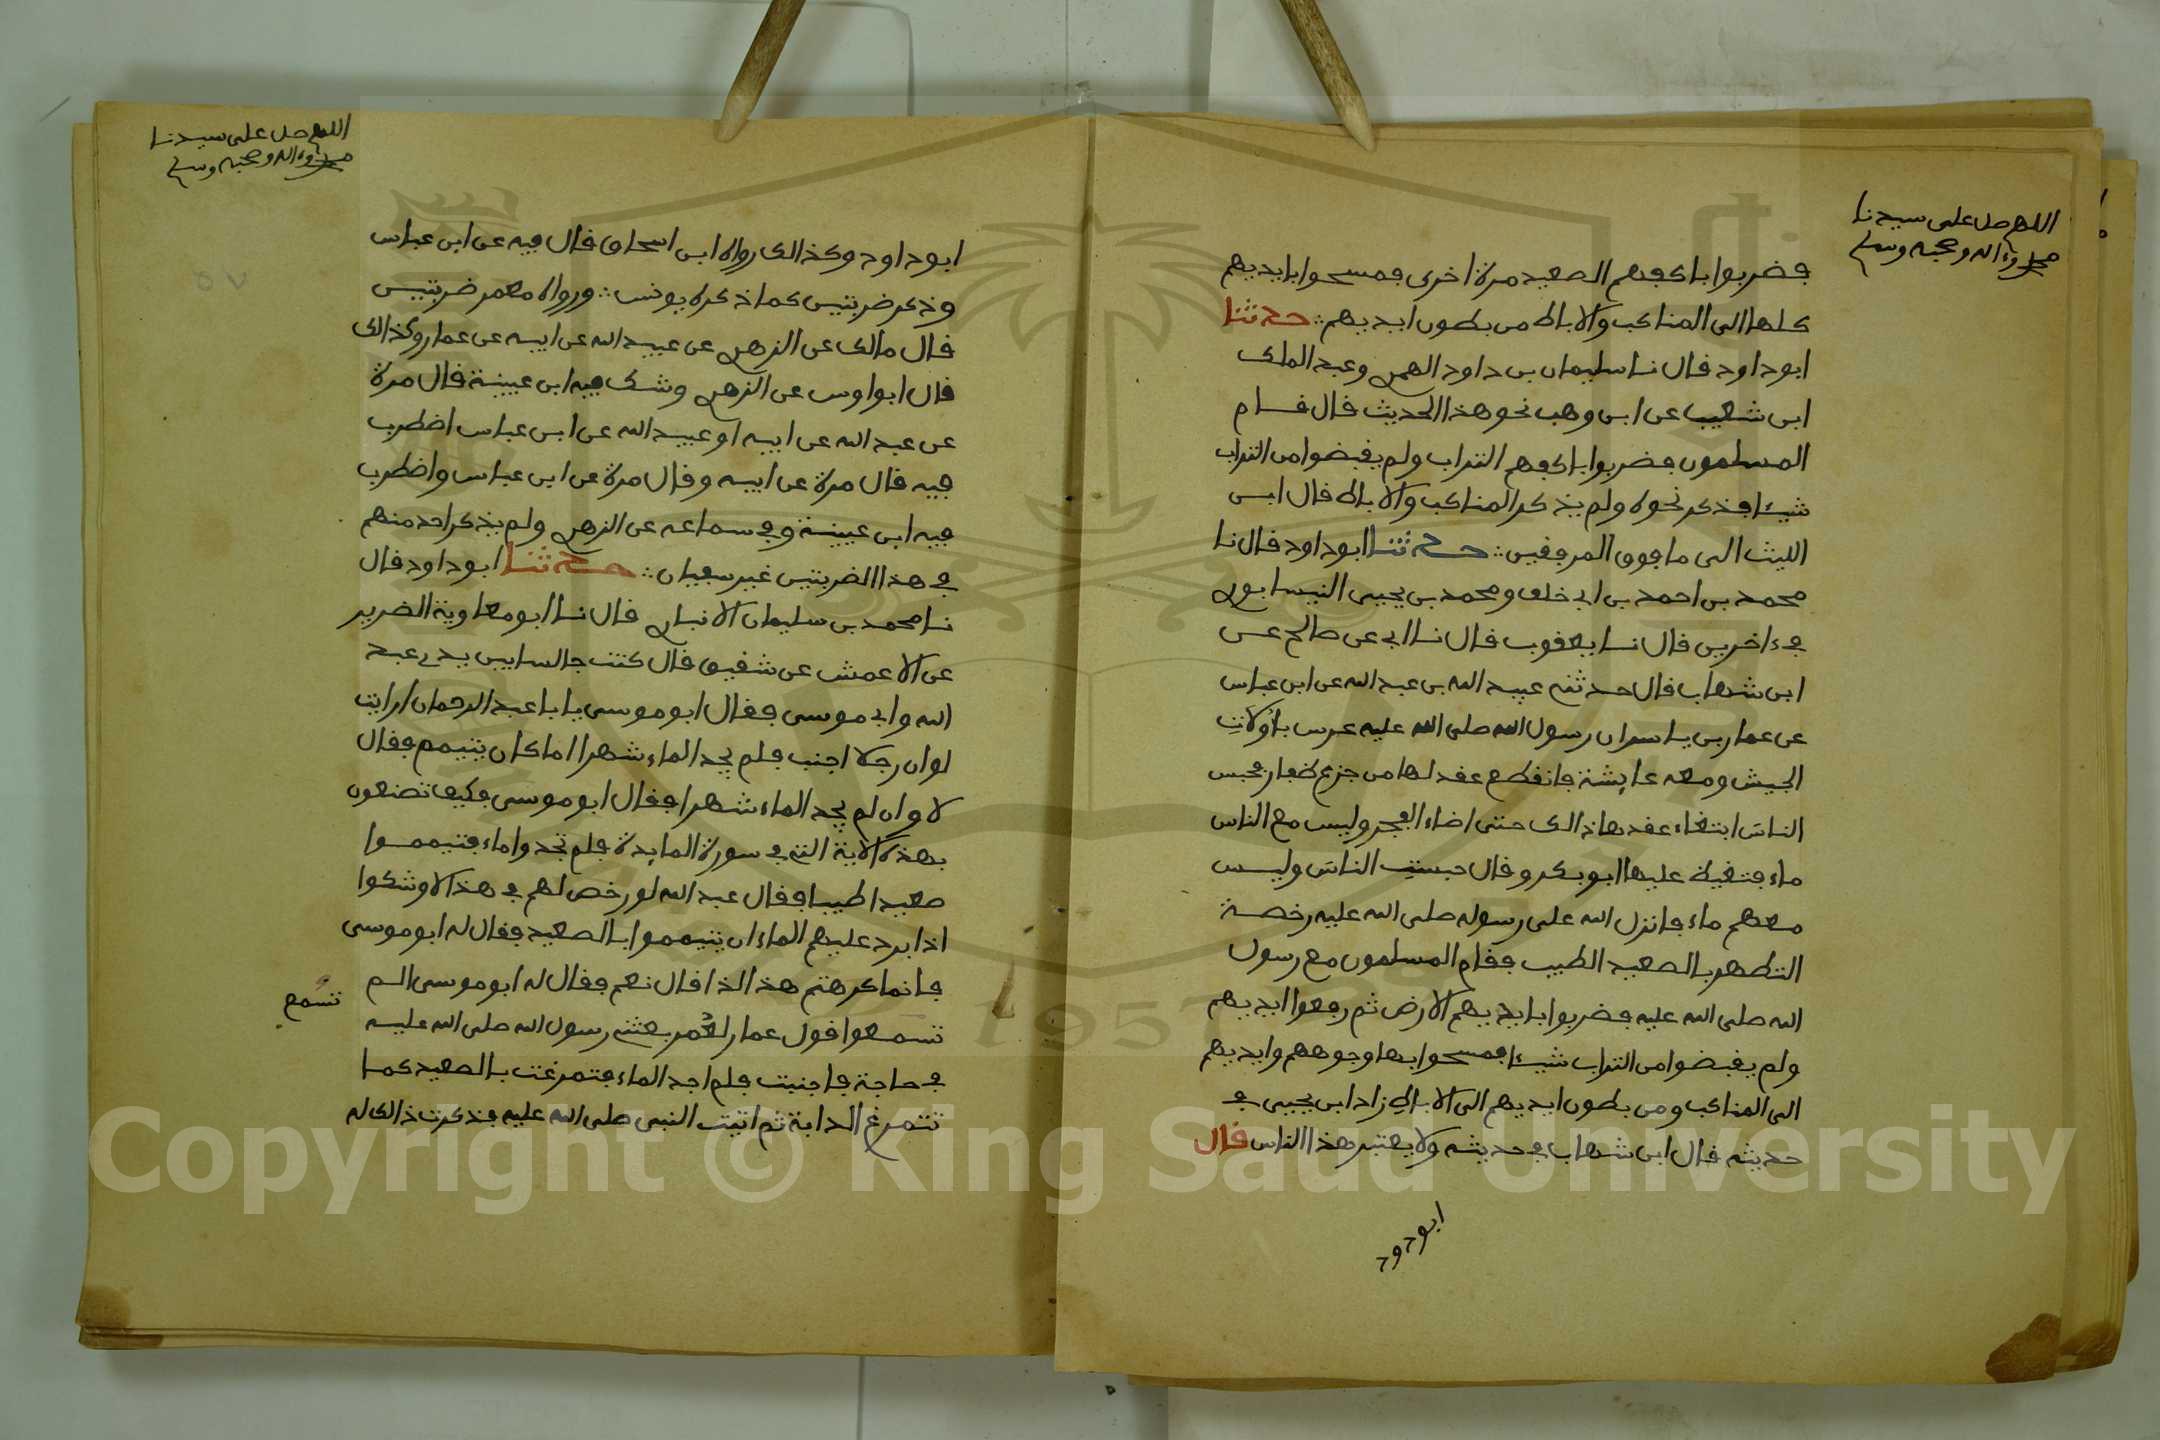 اللهم صل على سيدنا
محمد وءاله وصحبه وسلم
فضربوا باكفهم الصعيد مرة اخرى فمسحوا بايديهم
كلها الى المناكب والاباط من بطون ايديهم حدثنا
ابو داود قال نا سليمان بن داود المهري وعبد الملك
ابن شعيب عن ابن وهب نحو هذا الحديث قال قام
المسلمون فضربوا باكفهم التراب ولم يقبضوا من التراب
شيئا فذكر نحوه ولم يذكر المناكب والاباط قال ابن
الليث الى ما فوق المرفقين حدثنا ابو داود قال نا
محمد بن احمد بن ابي خلف ومحمد بن يحيى النيسابوري
في ءاخرين قال نا يعقوب قال نا ابي عن صالح عن
ابن شهاب قال حدثني عبيد الله بن عبد الله عن ابن عباس
عن عمار بن ياسر ان رسول الله صلى الله عليه عرس باولات
الجيش ومعه عايشة فانقطع عقد لها من جزع ظفار فحبس
الناس ابتغاء عقدها ذالك حتى اضاء الفجر وليس مع الناس
ماء فتغيظ عليها ابو بكر وقال حبست الناس وليس
معهم ماء فانزل الله على رسوله صلى الله عليه رخصة
التطهر بالصعيد الطيب فقام المسلمون مع رسول
الله صلى الله عليه فضربوا بايديهم الارض ثم رفعوا ايديهم
ولم يقبضوا من التراب شيئا فمسحوا بها وجوههم وايديهم
الى المناكب ومن بطون ايديهم الى الاباط زاد ابن يحيى في
حديثه قال ابن شهاب في حديثه ولا يعتبر هذا الناس قال
ابو داود
اللهم صل على سيدنا
محمد وءاله وصحبه وسلم
٥٧
ابو داود وكذالك رواه ابن اسحاق قال فيه عن ابن عباس
وذكر ضربتين كما ذكره يونس ورواه معمر ضربتين
قال مالك عن الزهري عن عبيد الله عن ابيه عن عمار وكذالك
قال ابو اوس عن الزهري وشك فيه ابن عيينة قال مرة
عن عبد الله عن ابيه او عبيد الله عن ابن عباس اضطرب
فيه قال مرة عن ابيه وقال مرة عن ابن عباس واضطرب
فيه ابن عيينة وفي سماعه عن الزهري ولم يذكر احد منهم
في هذا الضربتين غير سفيان حدثنا ابو داود قال
نا محمد بن سليمان الانباري قال نا ابو معاوية الضرير
عن الاعمش عن شقيق قال كنت جالسا بين يدي عبد
الله وابي موسى فقال ابو موسى يا با عبد الرحمان ارايت
لو ان رجلا اجنب فلم يجد الماء شهرا اما كان يتيمم فقال
لا وان لم يجد الماء شهرا فقال ابو موسى فكيف تصنعون
بهذه الاية التي في سورة المايدة فلم تجدوا ماء فتيمموا
صعيدا طيبا فقال عبد الله لو رخص لهم في هذا لاوشكوا
اذا برد عليهم الماء ان يتيمموا بالصعيد فقال له ابو موسى
فانما كرهتم هذا لذا قال نعم فقال له ابو موسى الم
تسمع
تسمعوا قول عمار لعمر بعثني رسول الله صلى الله عليه
في حاجة فاجنبت فلم اجد الماء فتمرغت بالصعيد كما
تتمرغ الدابة ثم اتيت النبي صلى الله عليه فذكرت ذالك له
1957
Copyright © King Saud University